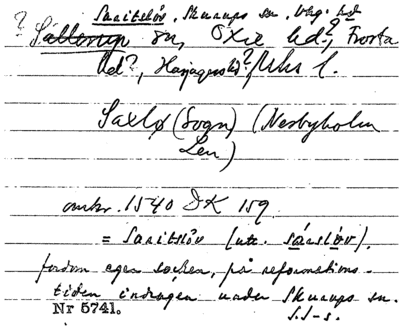 Saritslöv, Skurups sn, Vhg. hd
? Sällerup sn, Oxie hd?, Frosta
hd?, Harjagers hd? Mhs l.
Saxlø (Sogn) (Nesbyholm
Len)
omkr. 1540 DK 159
= Saritslöv (utt. sáeslöv).
fordom egen socken, på reformations-
tiden indragen under Skurups sn.
Nr 5741.
S.S-s.